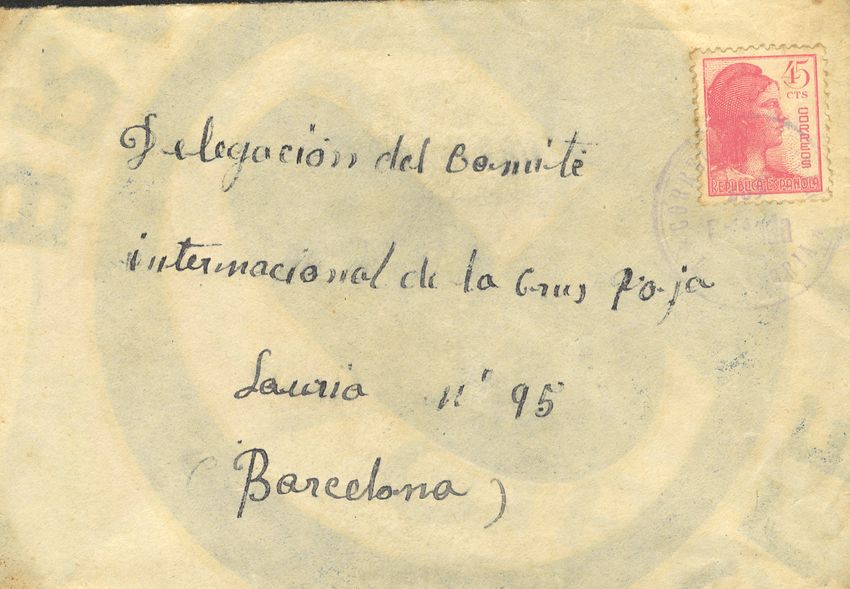 45
CTS
CORREOS
REPUBLICA ESPAÑOLA
Delegación del Comité
internacional de la Crus Roja
Lauria n' 95
(Barcelona)